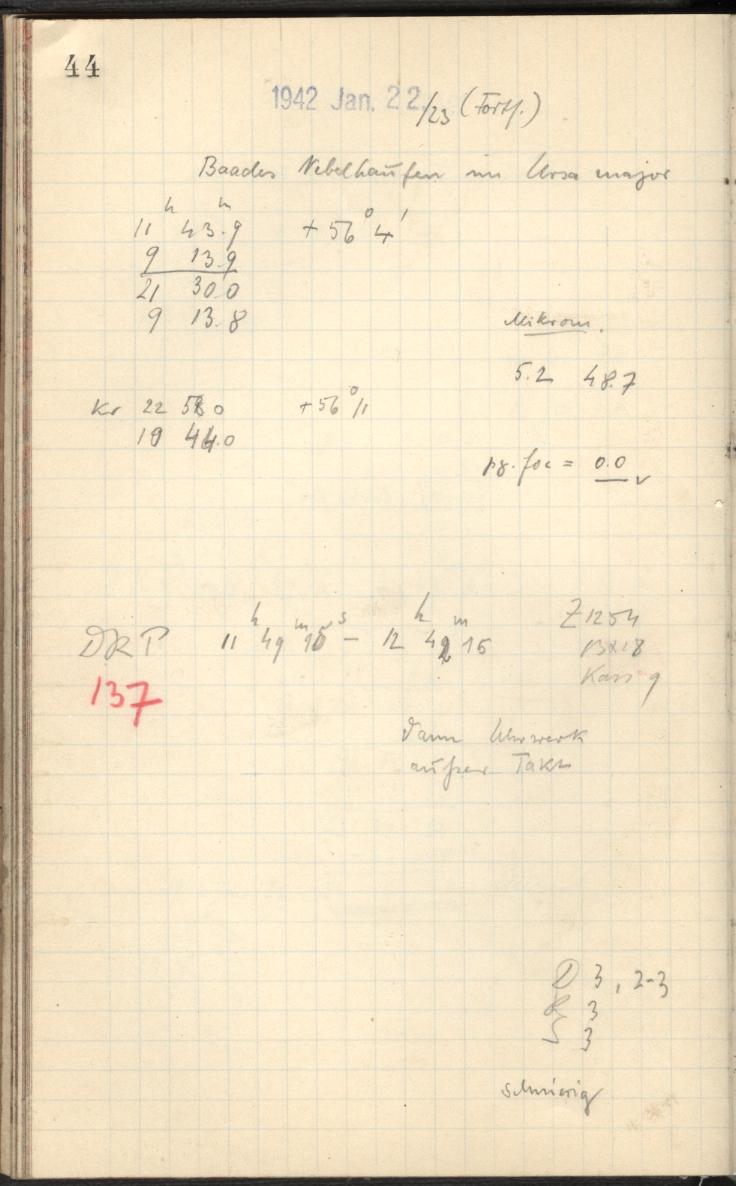 44
1942 Jan. 22/23 (Fortf.)
Baades Nebelhaufen im Ursa major
11h 43m.9 +56° 4'
9 13.9
21 30.0
9 13.8
Mikrom.
5.2 48.7
Kr 22 58 0 +56° 11
19 44.0
pg. foc = 0.0
DRP 11h 49m 15s – 12h 49m 15 Z1254
137
Kass 9
dann Uhrwerk
außer Takt
D 3, 2-3
R 3
S 3
schmierig